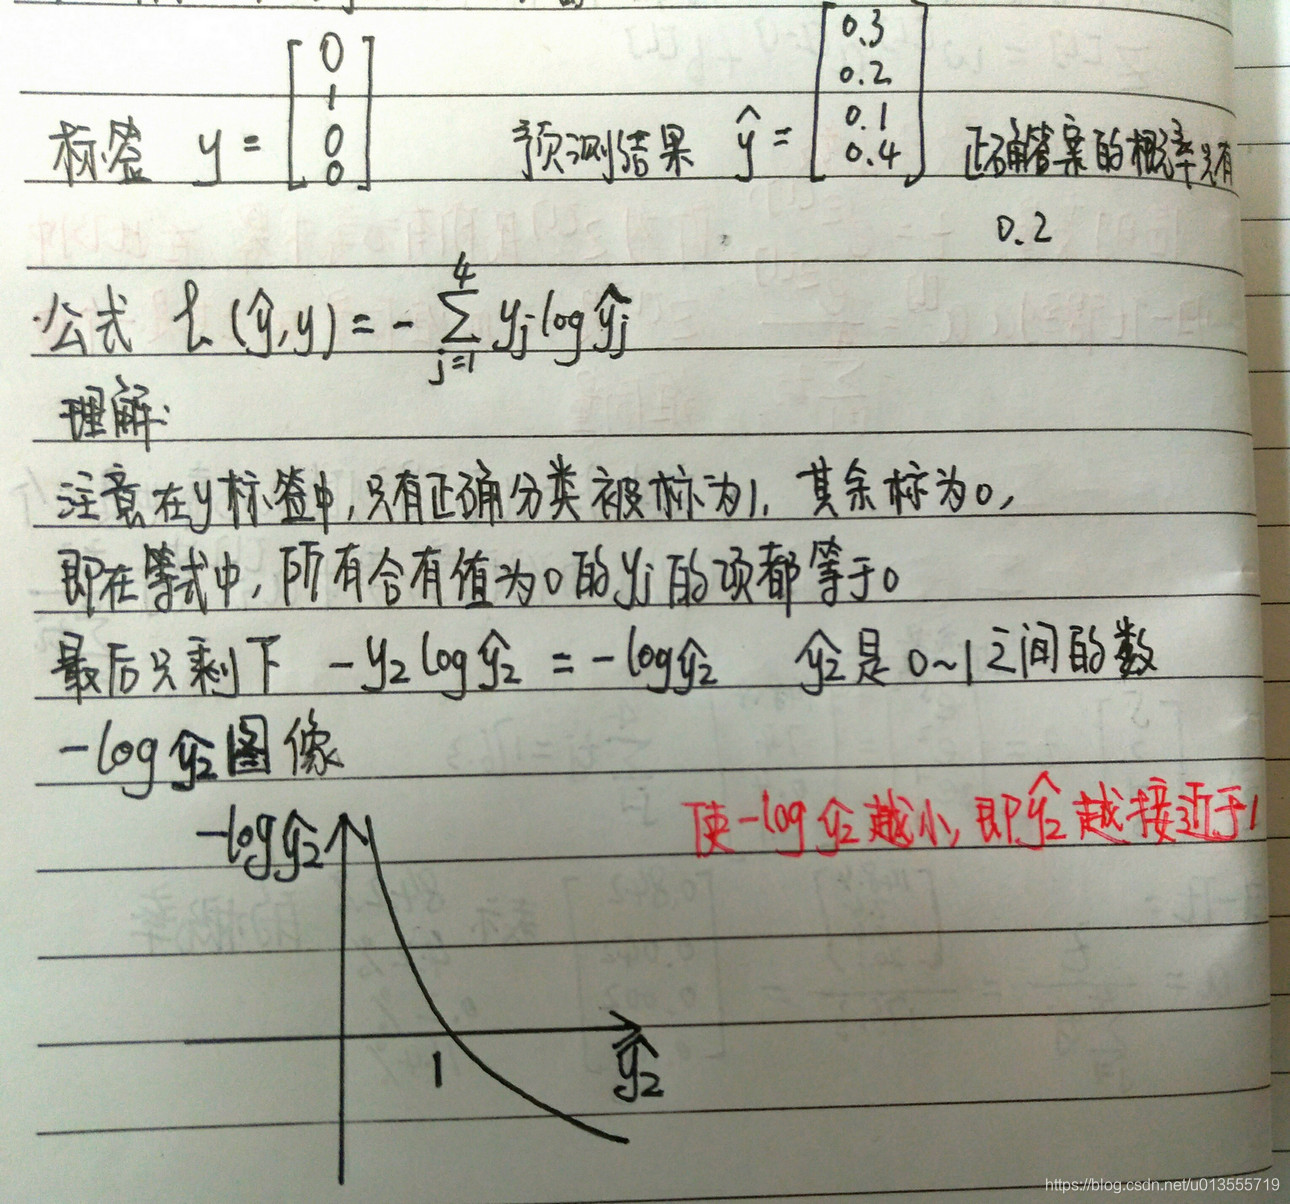 标签 y = [0 1 0 0] 预测结果 ŷ = [0.3 0.2 0.1 0.4] 正确答案的概率只有
0.2
公式 L(ŷ,y) = - ∑_{j=1}^{4} y_j log ŷ_j
理解:
注意在y标签中,只有正确分类被标为1, 其余标为0,
即在等式中,所有含有值为0的y_j的项都等于0
最后只剩下 -y_2 log ŷ_2 = -log ŷ_2 ŷ_2是0~1之间的数
-log ŷ_2图像
使-log ŷ_2越小,即ŷ_2越接近于1
-log ŷ_2
1
ŷ_2
https://blog.csdn.net/u013555719